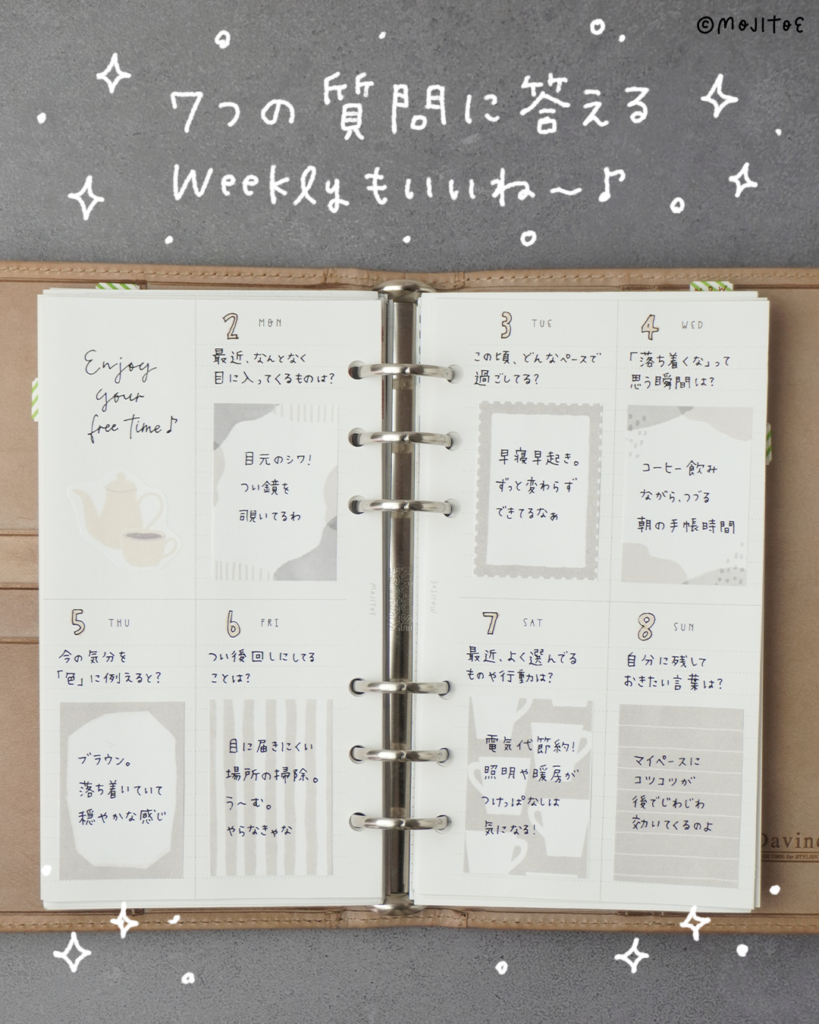 ©MOJITOE
7つの質問に答える
Weeklyもいいね〜♪
Enjoy
your
free time♪
2 MON
最近、なんとなく
目に入ってくるものは?
目元のシワ!
つい鏡を
覗いてるわ
3 TUE
この頃、どんなペースで
過ごしてる?
早寝早起き。
ずっと変わらず
できてるなぁ
4 WED
「落ち着くな」って
思う瞬間は?
コーヒー飲み
ながら、つづる
朝の手帳時間
5 THU
今の気分を
「色」に例えると?
ブラウン。
落ち着いていて
穏やかな感じ
6 FRI
つい後回しにしてる
ことは?
目に届きにくい
場所の掃除。
う〜む。
やらなきゃな
7 SAT
最近、よく選んでる
ものや行動は?
電気代節約!
照明や暖房が
つけっぱなしは
気になる!
8 SUN
自分に残して
おきたい言葉は?
マイペースに
コツコツが
後でじわじわ
効いてくるのよ
Davinc